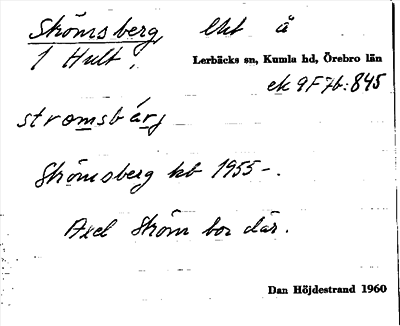 Strömsberg, lht å
1 Hult,
Lerbäcks sn, Kumla hd, Örebro län
ek 9F7b:845
strømsbárj
Strömsberg kb 1955-.
Axel Ström bor där.
Dan Höjdestrand 1960